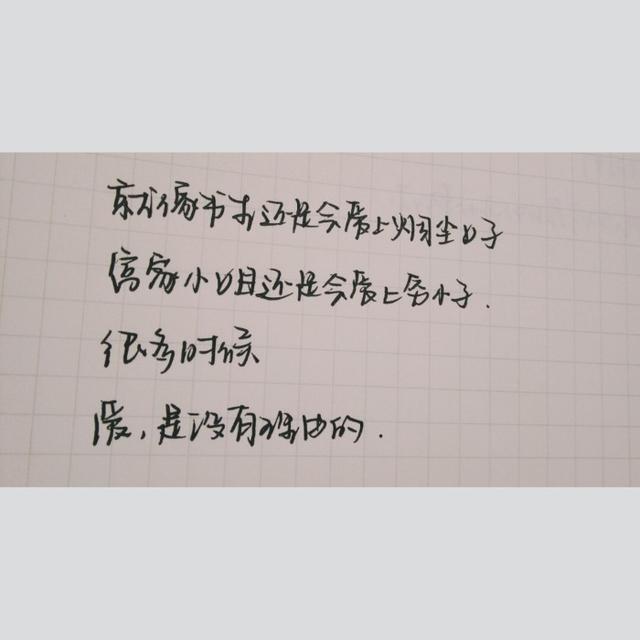 就像书生还是会爱上烟尘女子
富家小姐还是会爱上穷小子.
很多时候
爱,是没有理由的.